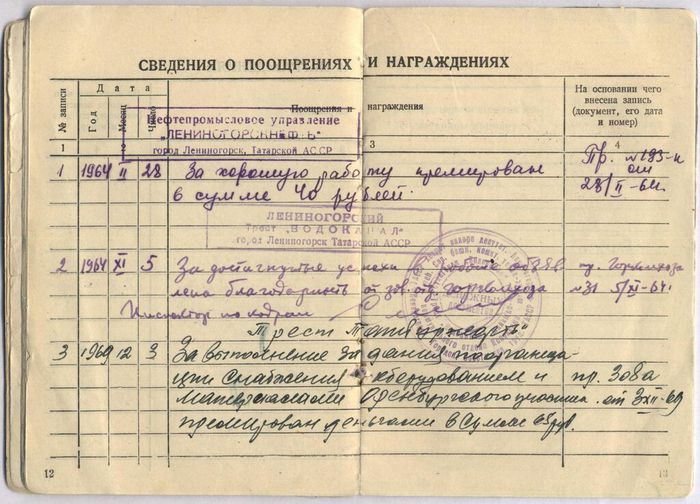 СВЕДЕНИЯ О ПООЩРЕНИЯХ И НАГРАЖДЕНИЯХ
№ записи
Дата
Год
Месяц
Число
Поощрения и награждения
На основании чего
внесена запись
(документ, его дата
и номер)
1
2
3
4
Нефтепромысловое управление
„ЛЕНИНОГОРСКНЕФТЬ"
город Лениногорск, Татарской АССР
1 1964 II 28 За хорошую работу премирован
в сумме 40 рублей.
Пр. №185-к
от
28/II-64г.
ЛЕНИНОГОРСКИЙ
Трест „ВОДОКАНАЛ"
город Лениногорск Татарской АССР
2 1964 XI 5 За достигнутые успехи в работе объяв
лена благодарность от зав. отд. горкомхоза
пр. Горкомхоза
№31 5/XI-64г.
Инспектор по кадрам
Трест „Татбурнефть"
3 1969 12 3 За выполнение задания по организа-
ции снабжения оборудованием и
материалами Оренбургского участка
премирован деньгами в сумме 65 руб.
пр. 308а
от 3/XII-69
12
13